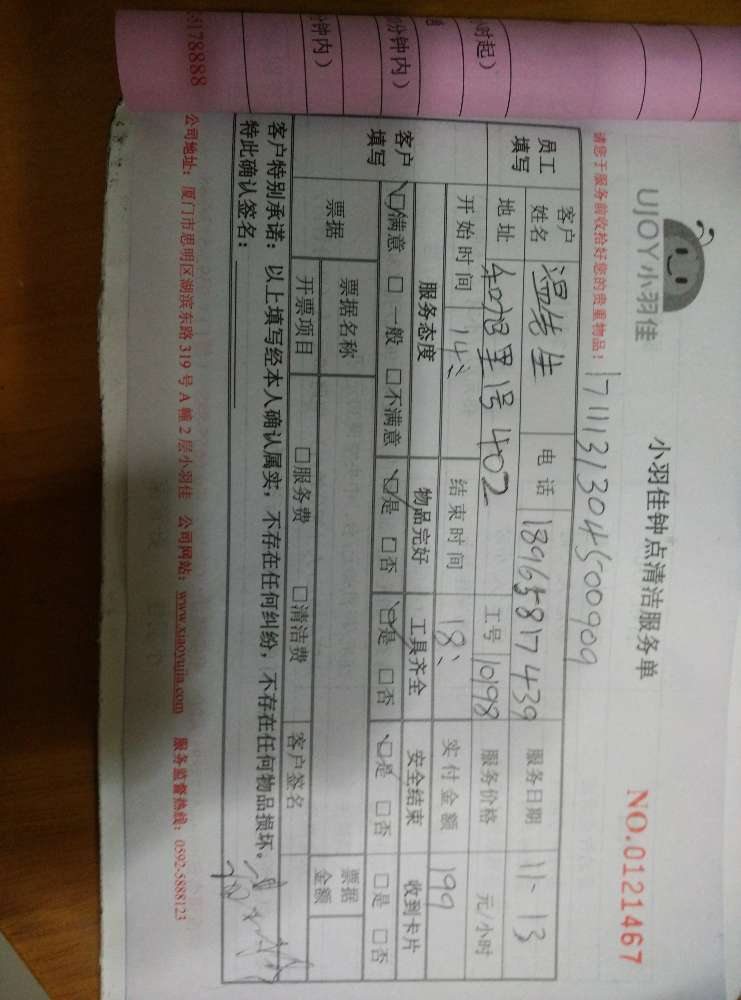 5178888
时起）
分钟内）
钟内）
UJOY小羽佳
小羽佳钟点清洁服务单
NO.0121467
请您于服务前收拾好您的贵重物品！
171113130450090​9
员工填写
客户姓名 温先生 电话 18965817439 服务日期 11-13
地址 402 工号 10198 服务价格 元/小时
开始时间 14: 结束时间 18: 实付金额 199
客户填写
服务态度 物品完好 工具齐全 安全结束 收到卡片
☑满意 □一般 □不满意 ☑是 □否 ☑是 □否 ☑是 □否 □是 □否
票据 票据名称 票据金额
开票项目 □服务费 □清洁费 客户签名
客户特别承诺：以上填写经本人确认属实，不存在任何纠纷，不存在任何物品损坏。
特此确认签名：
公司地址：厦门市思明区湖滨东路 319 号 A 幢 2 层小羽佳 公司网站：www.xiaoyujia.com 服务监督热线：0592-5888123